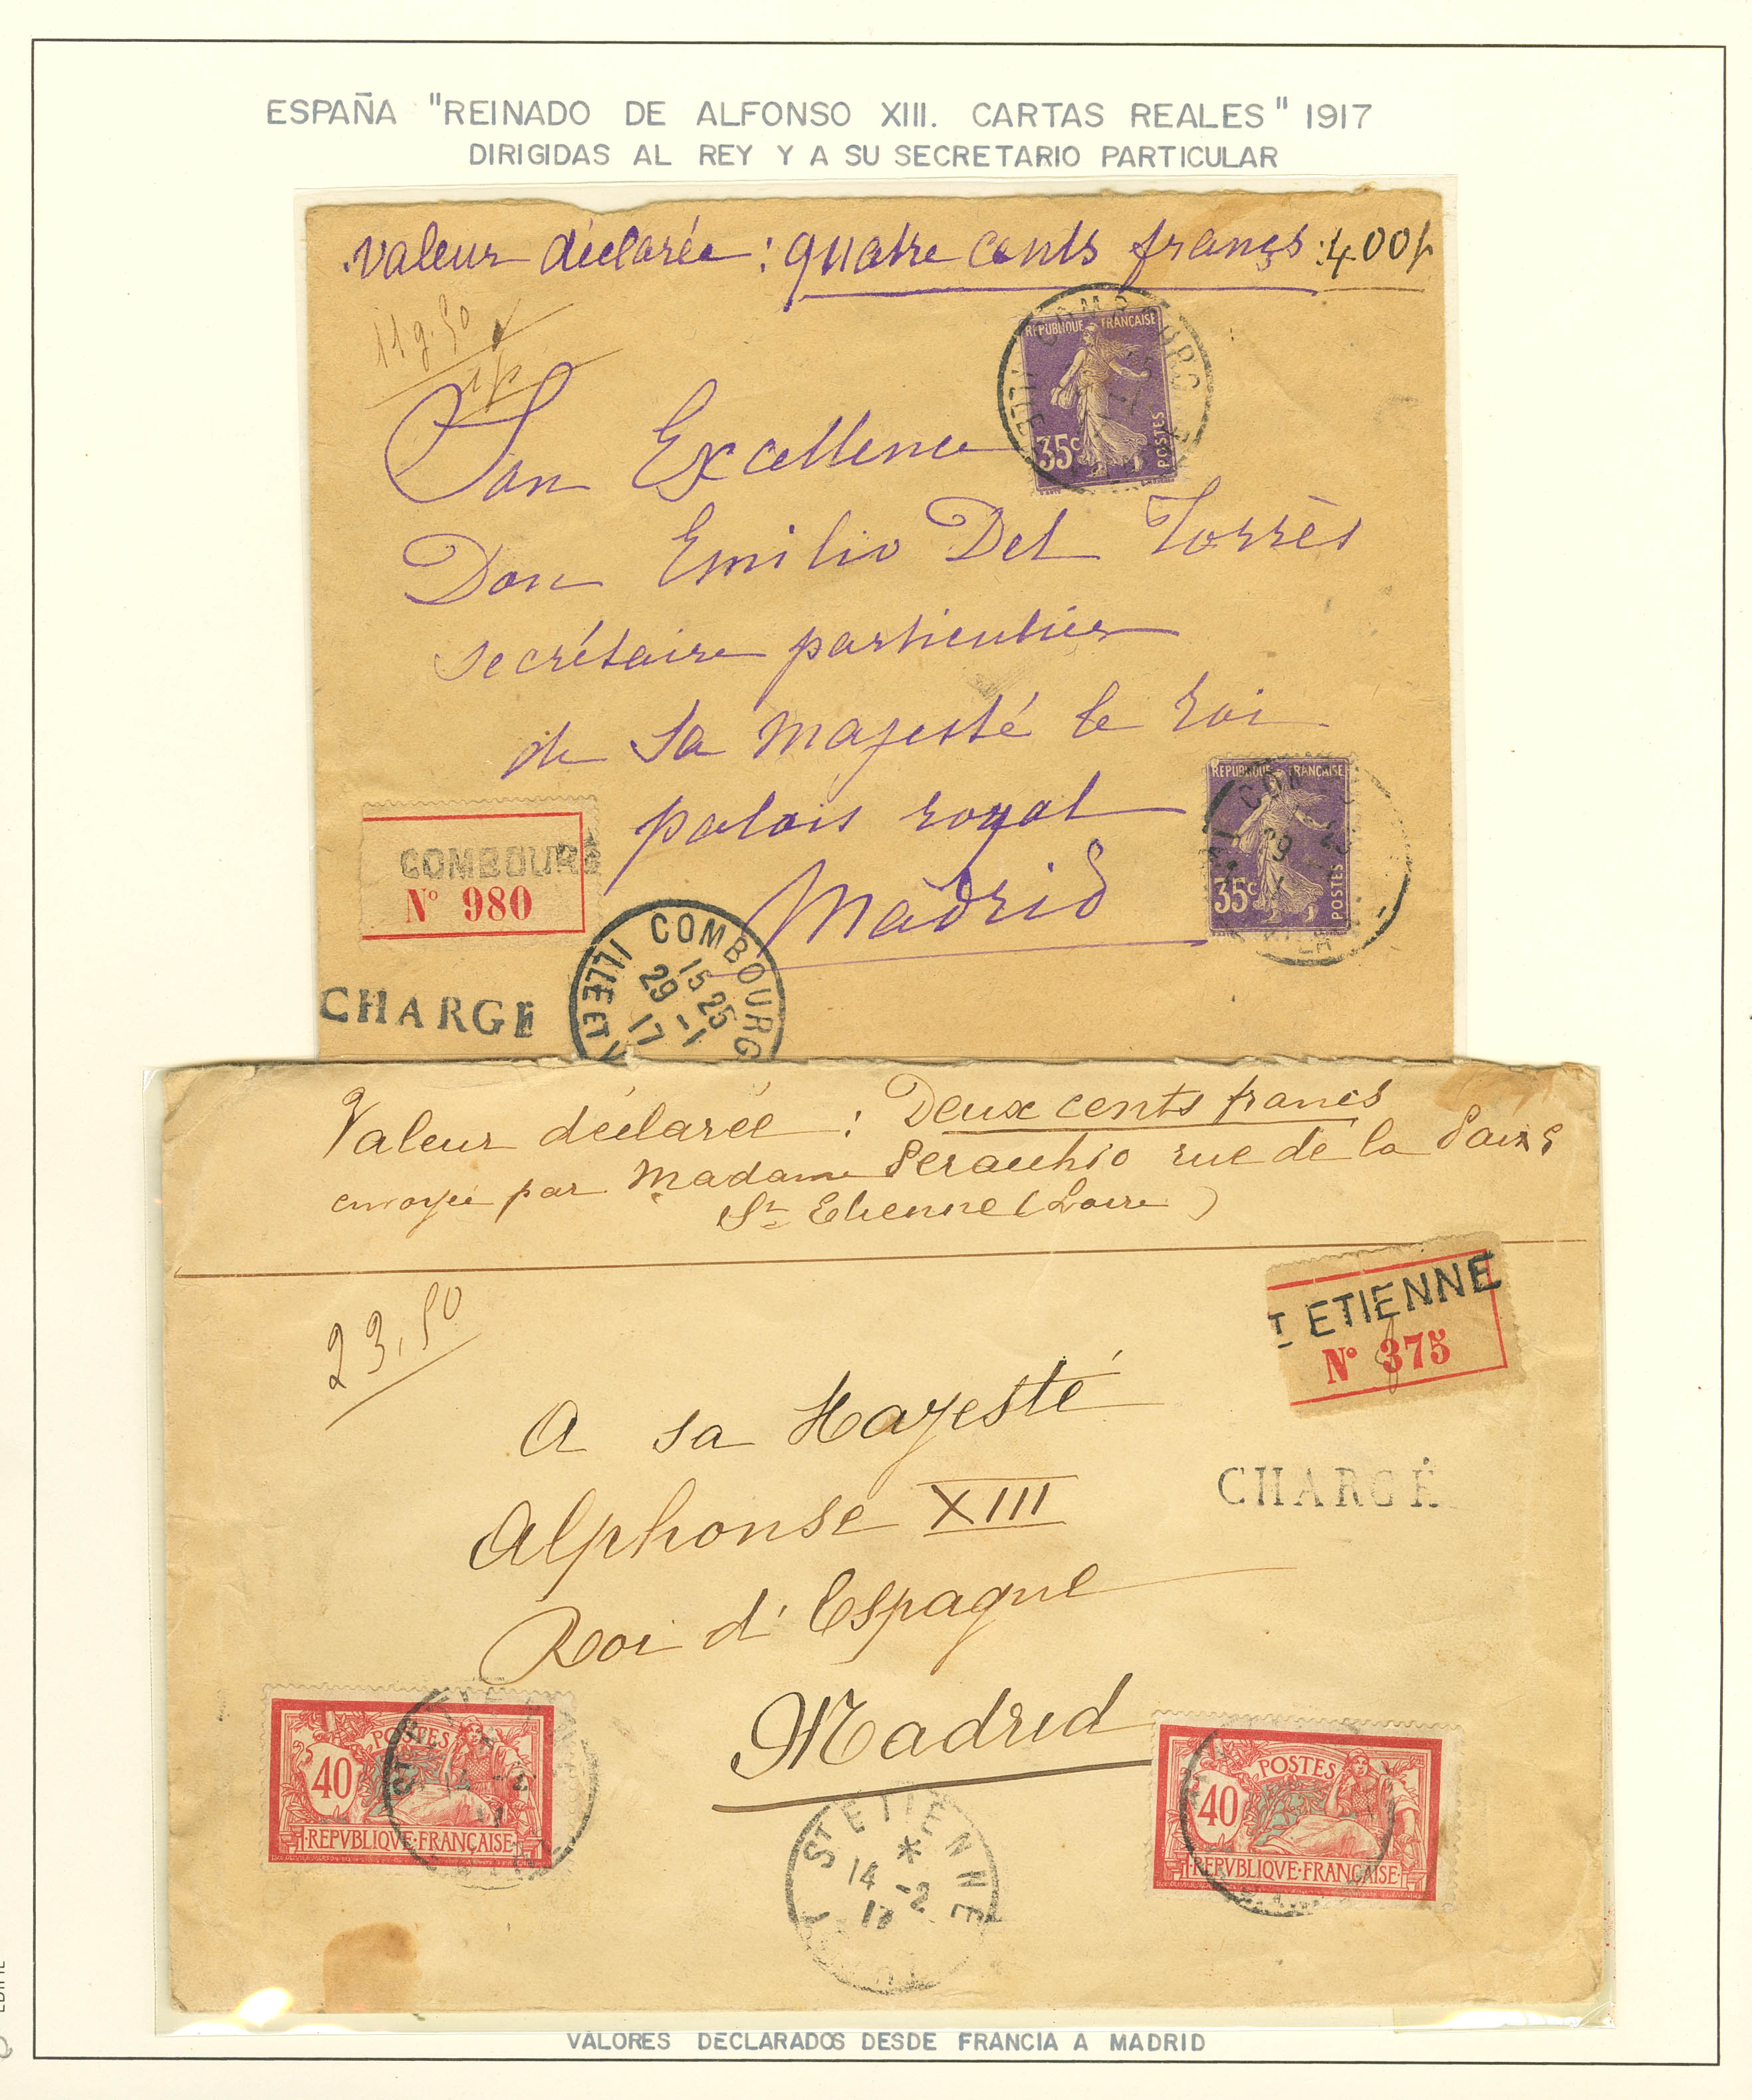 ESPAÑA "REINADO DE ALFONSO XIII. CARTAS REALES" 1917
DIRIGIDAS AL REY Y A SU SECRETARIO PARTICULAR
Valeur déclarée : quatre cents francs : 400f
11g.50
REPUBLIQUE FRANÇAISE
35c POSTES
Son Excellence
Don Emilio Del Torrès
secrétaire particulier
de Sa Majesté le Roi
palais royal
Madrid
REPUBLIQUE FRANÇAISE
35c POSTES
COMBOURG
N° 980
CHARGÉ
COMBOURG
15 25
29 -1
17
ILLE ET V
Valeur déclarée : Deux cents francs
envoyée par Madame Peracchio rue de la Paix 5
St Etienne (Loire)
23,50
T ETIENNE
N° 375
A sa Majesté
CHARGÉ
Alphonse XIII
Roi d'Espagne
Madrid
POSTES
40
REPVBLIQVE FRANÇAISE
ST ETIENNE
14 -2
17
POSTES
40
REPVBLIQVE FRANÇAISE
VALORES DECLARADOS DESDE FRANCIA A MADRID